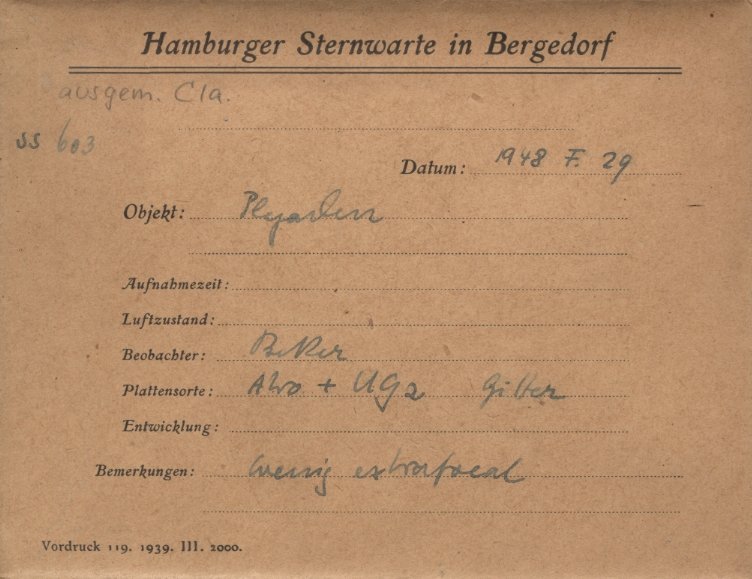 Hamburger Sternwarte in Bergedorf
ausgem. Cla.
SS 603
Datum: 1948 F. 29
Objekt: Plejaden
Aufnahmezeit:
Luftzustand:
Beobachter:
Plattensorte: + UG2 Gitter
Entwicklung:
Bemerkungen: wenig extrafocal
Vordruck 119. 1939. III. 2000.